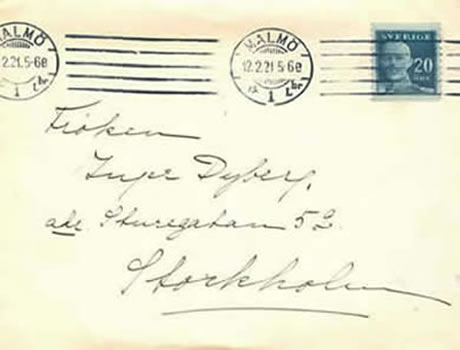 MALMÖ
12.2.21.5-6e
1 Lbr
MALMÖ
12.2.21.5-6e
1 Lbr
SVERIGE
20
ÖRE
Fröken
Inger Dyberg,
adr. Sturegatan 52
Stockholm